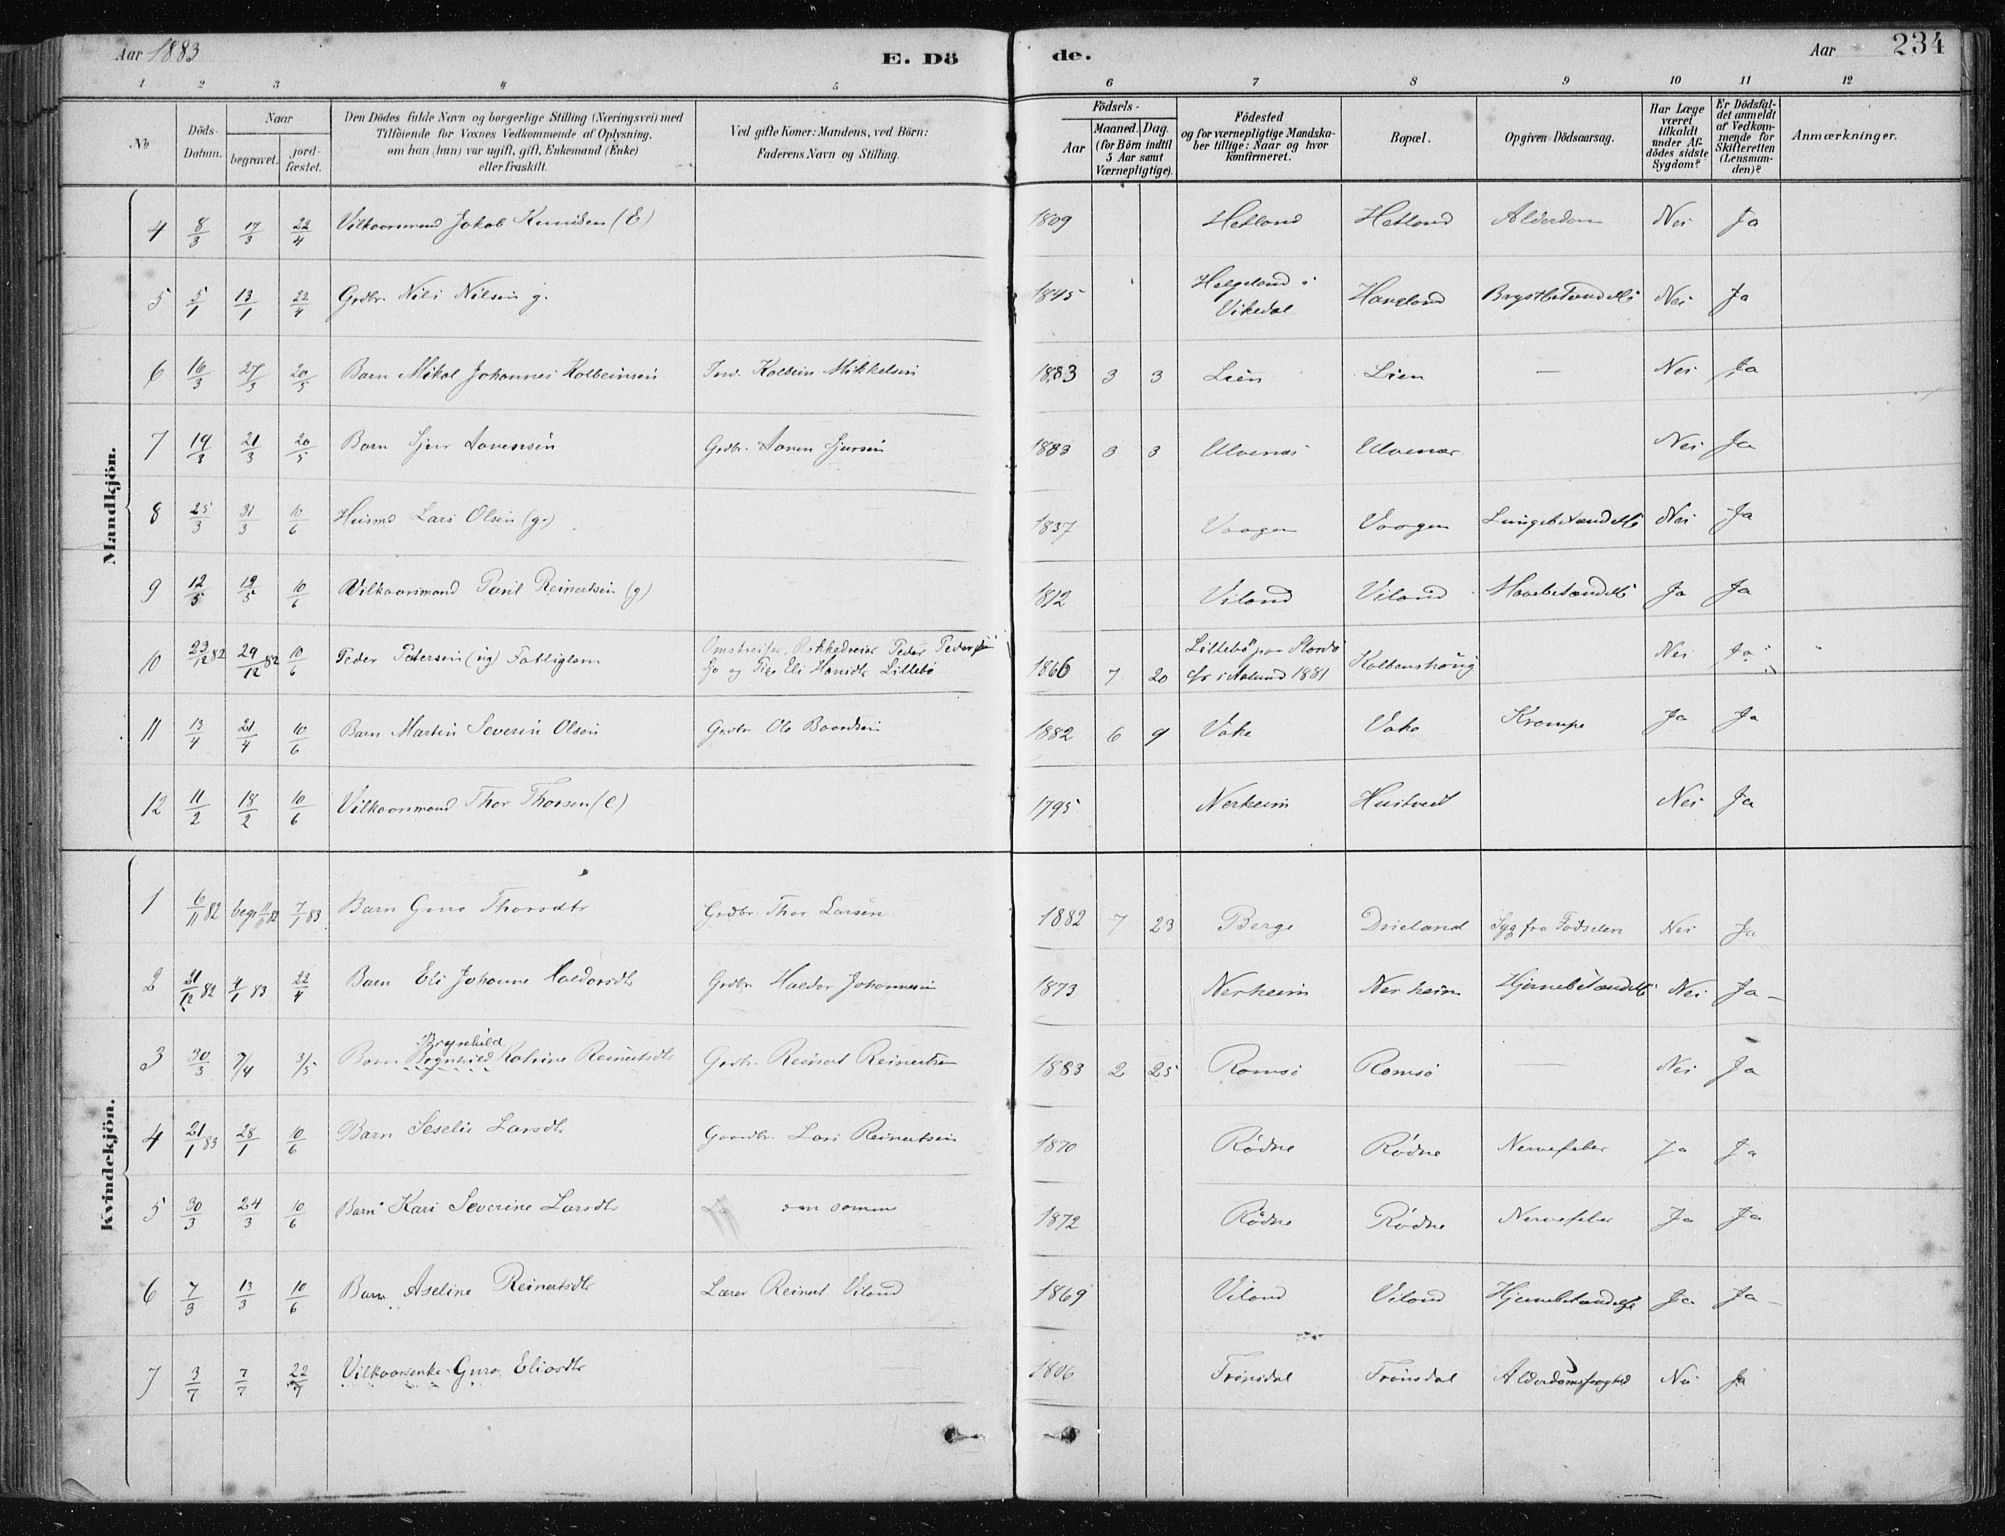 Aar 1883
E. Dö
de.
Aar
234
1 2 3 4 5 6 7 8 9 10 11 12
No
Döds-Datum.
Naar
begravet.
jordfæstet.
Den Dödes fulde Navn og borgerlige Stilling (Næringsvei) med
Tilföiende for Voxnes Vedkommende af Oplysning,
om han (hun) var ugift, gift, Enkemand (Enke)
eller fraskilt.
Ved gifte Koner: Mandens, ved Börn:
Faderens Navn og Stilling.
Födsels-
Aar
Maaned. Dag.
(for Börn indtil
5 Aar samt
Værnepligtige).
Födested
og for værnepligtige Mandska-
ber tillige: Naar og hvor
konfirmeret.
Bopæl.
Opgiven Dödsaarsag.
Har Læge
været
tilkaldt
under Af-
dödes sidste
Sygdom?
Er Dödsfal-
det anmeldt
af Vedkom-
mende for
Skifteretten
(Lensman-
den)?
Anmærkninger.
Mandkjön.
4 8/3 17/3 22/4 Vilkaarsmand Jakob Knudsen (E) 1809 Hetland Hetland Alderdom Nei Ja
5 5/1 13/1 22/4 Grdbr. Nils Nilsen g. 1845 Helgeland i Vikedal Haveland Brystbetændelse Nei Ja
6 16/3 27/3 20/5 Barn Mikal Johannes Kolbeinsen Kolbein Mikkelsen 1883 3 3 Lien Lien — Nei Ja
7 19/3 21/3 20/5 Barn Sjur Aanensen Grdbr. Aanen Sjursen 1883 3 3 Ulvenæs Ulvenæs Nei Ja
8 25/3 31/3 10/6 Husmd Lars Olsen (g.) 1837 Vaagen Vaagen Lungebetændelse Nei Ja
9 12/5 19/5 10/6 Vilkaarsmand Paul Reinertsen (g) 1812 Viland Viland Mavebetændelse Ja Ja
10 23/12 82 29/12 82 10/6 Peder Petersen (ug) Fattiglem Omstreifer, Rokkedreier Peder Pedersen
og Eli Hansdtr Lillebö 1866 7 20 Lillebö Stordö i Aalund 1881 Kolbenshaug Nei Ja
11 13/4 21/4 10/6 Barn Martin Severin Olsen Grdbr. Ole Baardsen 1882 6 9 Vake Vake Krampe Ja Ja
12 11/2 18/2 10/6 Vilkaarsmand Thor Thorsen (e) 1795 Nerheim Hustvedt Nei Ja
Kvindekjön.
1 6/11 82 begr 11/11 82 7/1 83 Barn Guro Thorsdtr Grdbr. Thor Larsen 1882 7 23 Berge Drieland Syg fra Födselen Nei Ja
2 21/12 82 4/1 83 22/4 Barn Eli Johanne Haldorsdtr Grdbr. Haldor Johannesen 1873 Nerheim Nerheim Hjernebetændelse Nei Ja
3 30/3 7/4 3/5 Barn Brynhild Rognhild Katrine Reinertsdtr Grdbr. Reinert Reinertsen 1883 2 25 Romsö Romsö — Nei Ja
4 21/1 83 28/1 10/6 Barn Seselie Larsdtr Gaardbr. Lars Reinertsen 1870 Rödne Rödne Nervefeber Ja Ja
5 30/3 24/3 10/6 Barn Kari Severine Larsdtr den samme 1872 Rödne Rödne Nervefeber Ja Ja
6 7/3 13/3 10/6 Barn Aseline Reinertsdtr Lærer Reinert Viland 1869 Viland Viland Hjernebetændelse Ja Ja
7 3/7 7/7 22/7 Vilkaarsenke Guro Eliasdtr 1806 Frönsdal Frönsdal Alderdomssvaghed Nei Ja